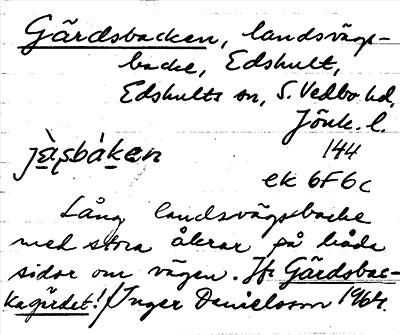 Gärdsbacken, landsvägs-
backe, Edshult,
Edshults sn, S. Vedbo hd,
Jönk. l.
jä̀sbàken 144
ek 6F6c
Lång landsvägsbacke
med stora åkrar på både
sidor om vägen. Jfr Gärdsbac-
kagärdet! / Inger Danielsson 1964.